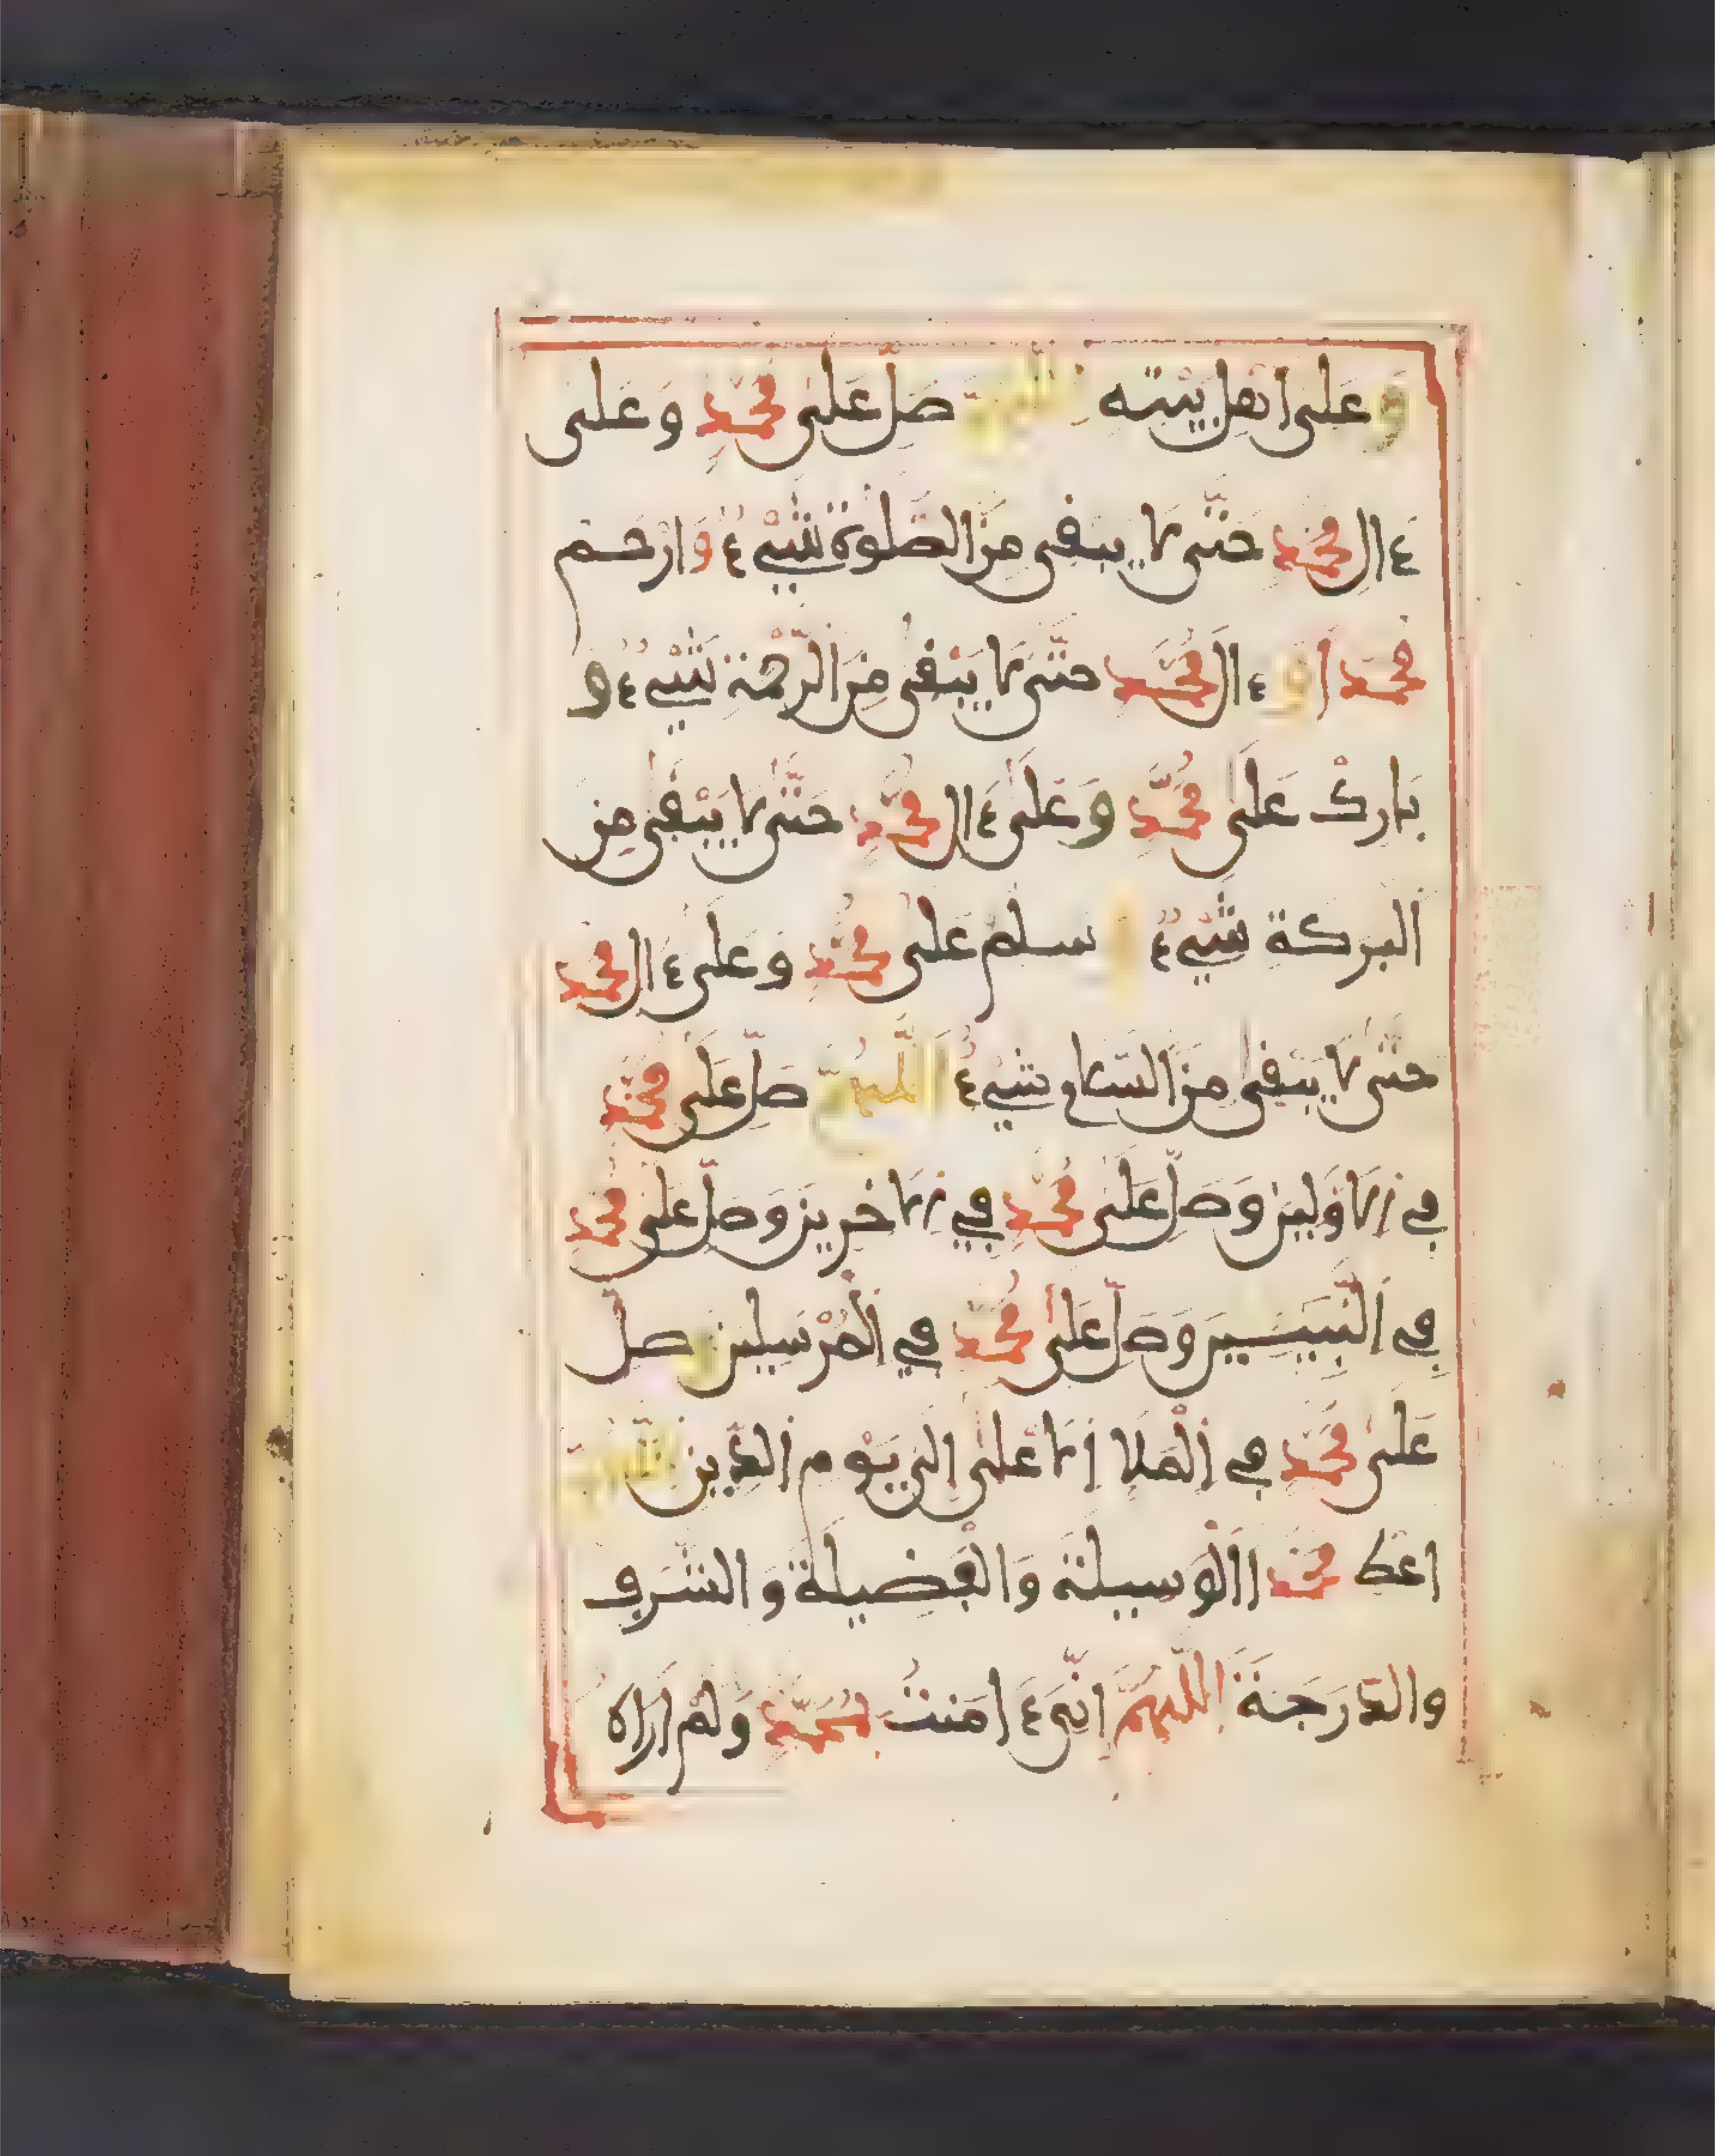 وَعَلَى أَهْلِ بَيْتِهِ اللهم صَلِّ عَلَى مُحَمَّدٍ وَعَلَى
ءَالِ مُحَمَّدٍ حَتَّى لَا يَبْقَى مِنَ الصَّلَوٰةِ شَيْءٌ وَارْحَمْ
مُحَمَّدًا وَءَالَ مُحَمَّدٍ حَتَّى لَا يَبْقَى مِنَ الرَّحْمَةِ شَيْءٌ وَ
بَارِكْ عَلَى مُحَمَّدٍ وَعَلَى ءَالِ مُحَمَّدٍ حَتَّى لَا يَبْقَى مِنَ
الْبَرَكَةِ شَيْءٌ وَسَلِّمْ عَلَى مُحَمَّدٍ وَعَلَى ءَالِ مُحَمَّدٍ
حَتَّى لَا يَبْقَى مِنَ السَّلَامِ شَيْءٌ اللَّهُمَّ صَلِّ عَلَى مُحَمَّدٍ
فِي الْأَوَّلِينَ وَصَلِّ عَلَى مُحَمَّدٍ فِي الْأَخِرِينَ وَصَلِّ عَلَى مُحَمَّدٍ
فِي النَّبِيِّينَ وَصَلِّ عَلَى مُحَمَّدٍ فِي الْمُرْسَلِينَ وَصَلِّ
عَلَى مُحَمَّدٍ فِي الْمَلَإِ الْأَعْلَى إِلَى يَوْمِ الدِّينِ اللهم
اعْطِ مُحَمَّدًا الْوَسِيلَةَ وَالْفَضِيلَةَ وَالشَّرَفَ
وَالدَّرَجَةَ اللَّهُمَّ إِنِّي ءَامَنْتُ بِمُحَمَّدٍ وَلَمْ أَرَاهُ